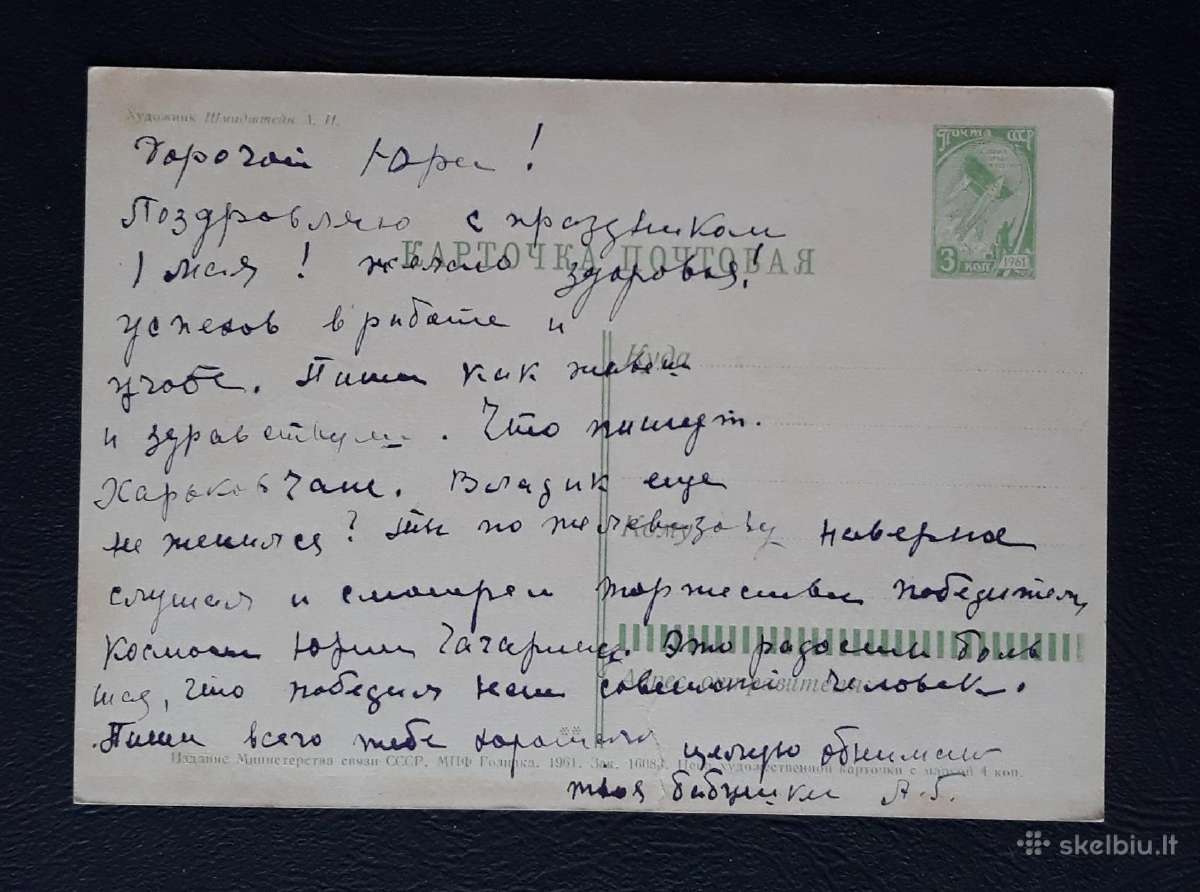 Художник Шмидштейн А. И.
Дорогой Юра!
Почта СССР
Поздравляю с праздником
1 мая! желаю здоровья!
КАРТОЧКА ПОЧТОВАЯ
3 коп 1961
успехов в работе и
Куда
учобе. Пиши как живеш
и здравствуеш. Что пишут
Харьковчане. Владик еще
не женился? ты по телевизору наверное
Кому
слушал и смотрел торжества победителя
космоса Юрия Гагарина. Это радость боль
шая, что победил наш советский человек.
Адрес отправителя:
Пиши всего тебе хорошего целую обнимаю
Издание Министерства связи СССР. МПФ Гознака. 1961. Зак. 16083. Цена художественной карточки с маркой 4 коп.
твоя бабушка А.Г.
skelbiu.lt